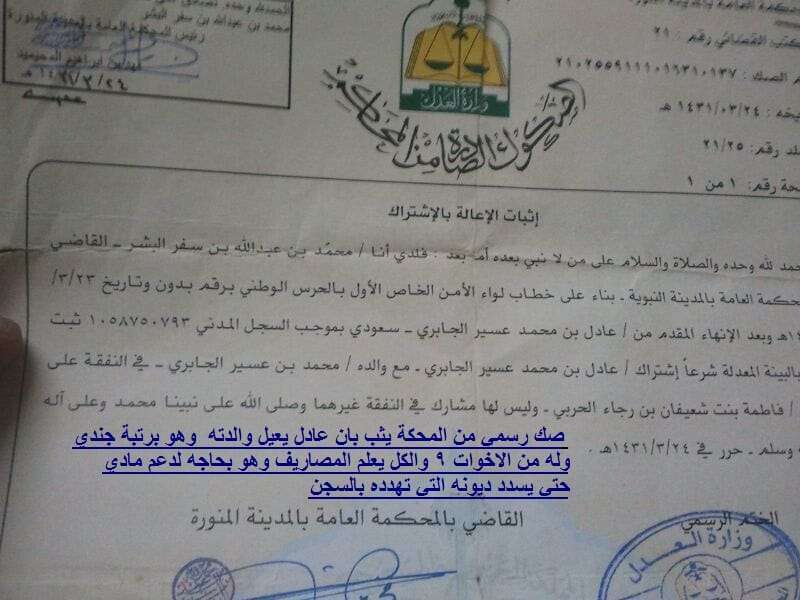 محمد بن عبدالله بن سفر البشر
رئيس المحكمة العامة بالمدينة المنورة
١٤٣١/٣/٢٤
وزارة العدل
الصكوك الصادرة من المحاكم
كتب القضائي رقم : ٢١
م الصك : ٢١٠٢٥٥٩١١١٠١٦٣١٠١٣٧
يخه : ١٤٣١/٠٣/٢٤ هـ
لد رقم : ٢١/٢٥
حة رقم : ١ من ١
إثبات الإعالة بالإشتراك
حمد لله وحده والصلاة والسلام على من لا نبي بعده أما بعد : فلدي أنا / محمد بن عبدالله بن سفر البشر ـ القاضي
حكمة العامة بالمدينة النبوية ـ بناء على خطاب لواء الأمن الخاص الأول بالحرس الوطني برقم بدون وتاريخ ٣/٢٣/
١٤هـ وبعد الإنهاء المقدم من / عادل بن محمد عسير الجابري ـ سعودي بموجب السجل المدني ١٠٥٨٧٥٠٧٩٣ ثبت
بالبينة المعدلة شرعاً إشتراك / عادل بن محمد عسير الجابري ـ مع والده / محمد بن عسير الجابري ـ في النفقة على
/ فاطمة بنت شعيفان بن رجاء الحربي ـ وليس لها مشارك في النفقة غيرهما وصلى الله على نبينا محمد وعلى آله
وسلم ـ حرر في ١٤٣١/٣/٢٤هـ .
صك رسمي من المحكة يثب بان عادل يعيل والدته وهو برتبة جندي
وله من الاخوات ٩ والكل يعلم المصاريف وهو بحاجه لدعم مادي
حتى يسدد ديونه التي تهدده بالسجن
القاضي بالمحكمة العامة بالمدينة المنورة
الختم الرسمي
وزارة العدل